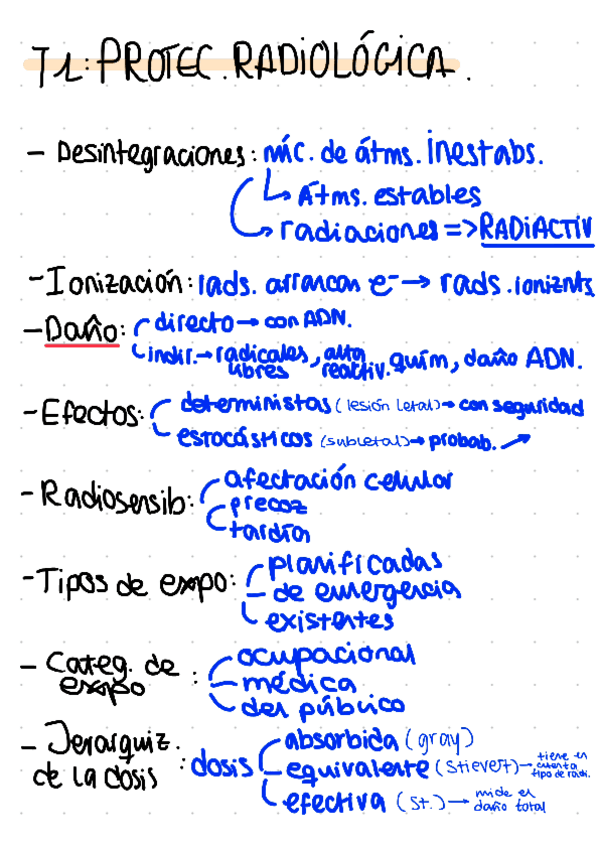 T1: PROTEC. RADIOLÓGICA.
- Desintegraciones: núc. de átms. inestabs.
↳ Átms. estables
↳ radiaciones => RADIACTIV
- Ionización: rads. arrancan e⁻ → rads. ioniznts
- Daño: directo → con ADN.
indir. → radicales libres, alta reactiv. quím, daño ADN.
- Efectos: deterministas (lesión letal) → con seguridad
estocásticos (subletal) → probab. ↗
- Radiosensib: afectación celular
precoz
tardía
- Tipos de expo: planificadas
de emergencia
existentes
- Categ. de expo: ocupacional
médica
del público
- Jerarquiz. de la dosis: dosis absorbida (gray)
equivalente (Stievert) → tiene en cuenta tipo de radi.
efectiva (St.) → mide el daño total